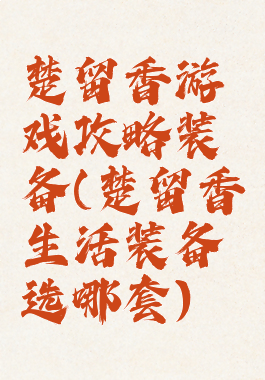 楚留香游
戏攻略装
备(楚留香
生活装备
选哪套)